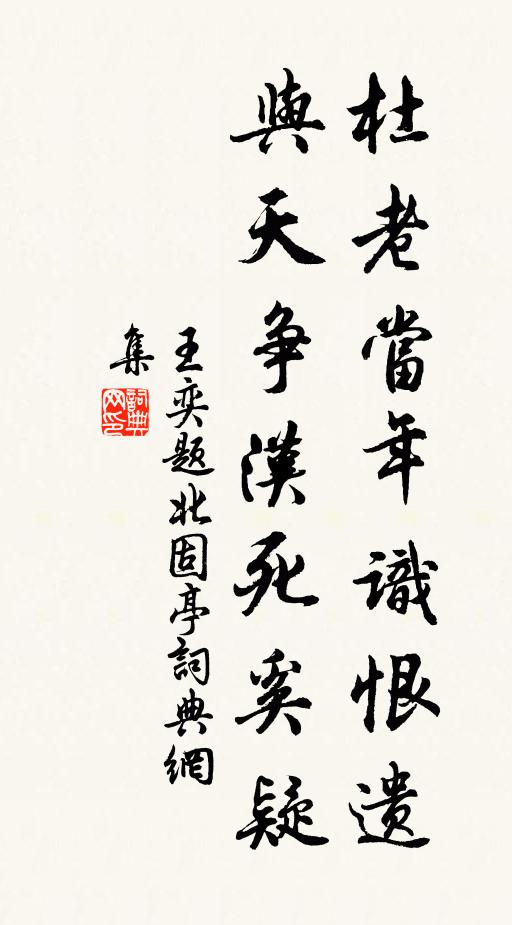 杜老當年識恨遗
與天争漢死奚疑
王奕题北固亭詞典網
集
詞典
网印